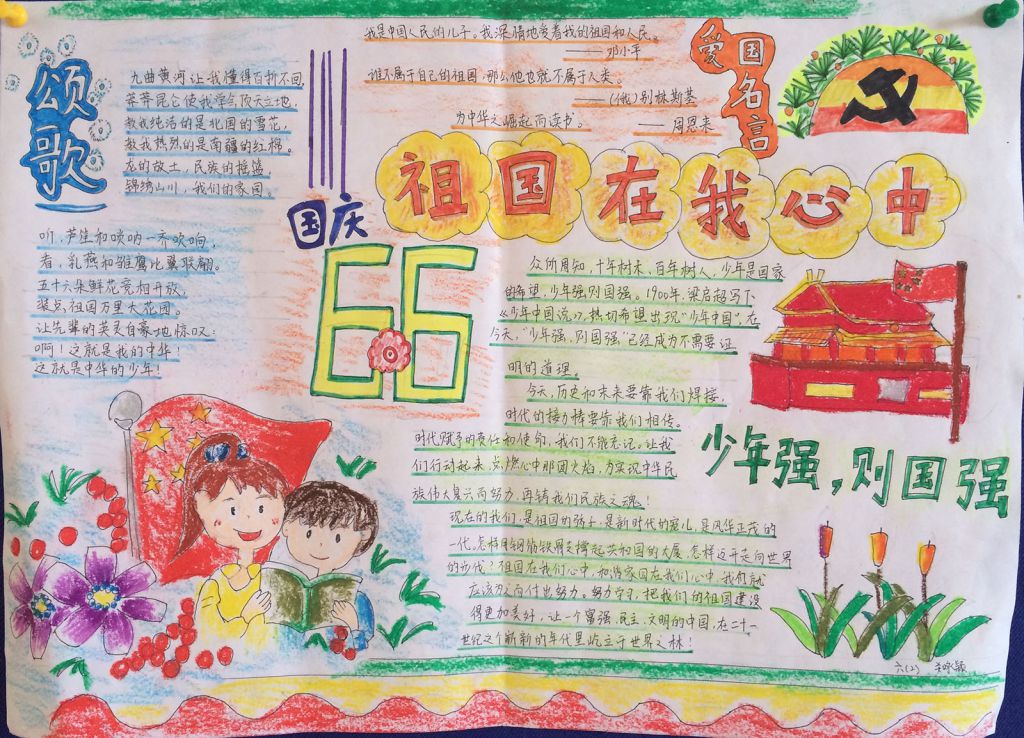 颂歌
九曲黄河让我懂得百折不回,
莽莽昆仑使我学会顶天立地,
教我纯洁的是北国的雪花,
教我热烈的是南疆的红棉。
龙的故土,民族的摇篮
锦绣山川,我们的家园。
听,芦笙和唢呐一齐吹响,
看,乳燕和雏鹰比翼联翩。
五十六朵鲜花竞相开放,
装点祖国万里大花园。
让先辈的英灵自豪地惊叹:
啊!这就是我的中华!
这就是中华的少年!
我是中国人民的儿子。我深情地爱着我的祖国和人民。
——邓小平
谁不属于自己的祖国,那么他也就不属于人类。
——(俄)别林斯基
为中华之崛起而读书。 ——周恩来
爱国名言
祖国在我心中
国庆
66
众所周知,十年树木,百年树人,少年是国家
的希望,少年强则国强。1900年,梁启超写下
《少年中国说》,热切希望出现"少年中国",在
今天,"少年强,则国强"已经成为不需要证
明的道理。
今天,历史和未来要靠我们焊接,
时代的接力棒要靠我们相传。
时代赋予的责任和使命,我们不能忘记。让我
们行动起来,点燃心中那团火焰,为实现中华民
族伟大复兴而努力,再铸我们民族之魂!
现在的我们,是祖国的骄子,是新时代的宠儿,是风华正茂的
一代。怎样用钢筋铁骨支撑起共和国的大厦,怎样迈开走向世界
的步伐?祖国在我们心中,
应该为之而付出努力。努力学习,把我们的祖国建设
得更加美好,让一个富强,民主,文明的中国,在二十一
世纪这个崭新的年代里屹立于世界之林!
少年强,则国强
六(2)